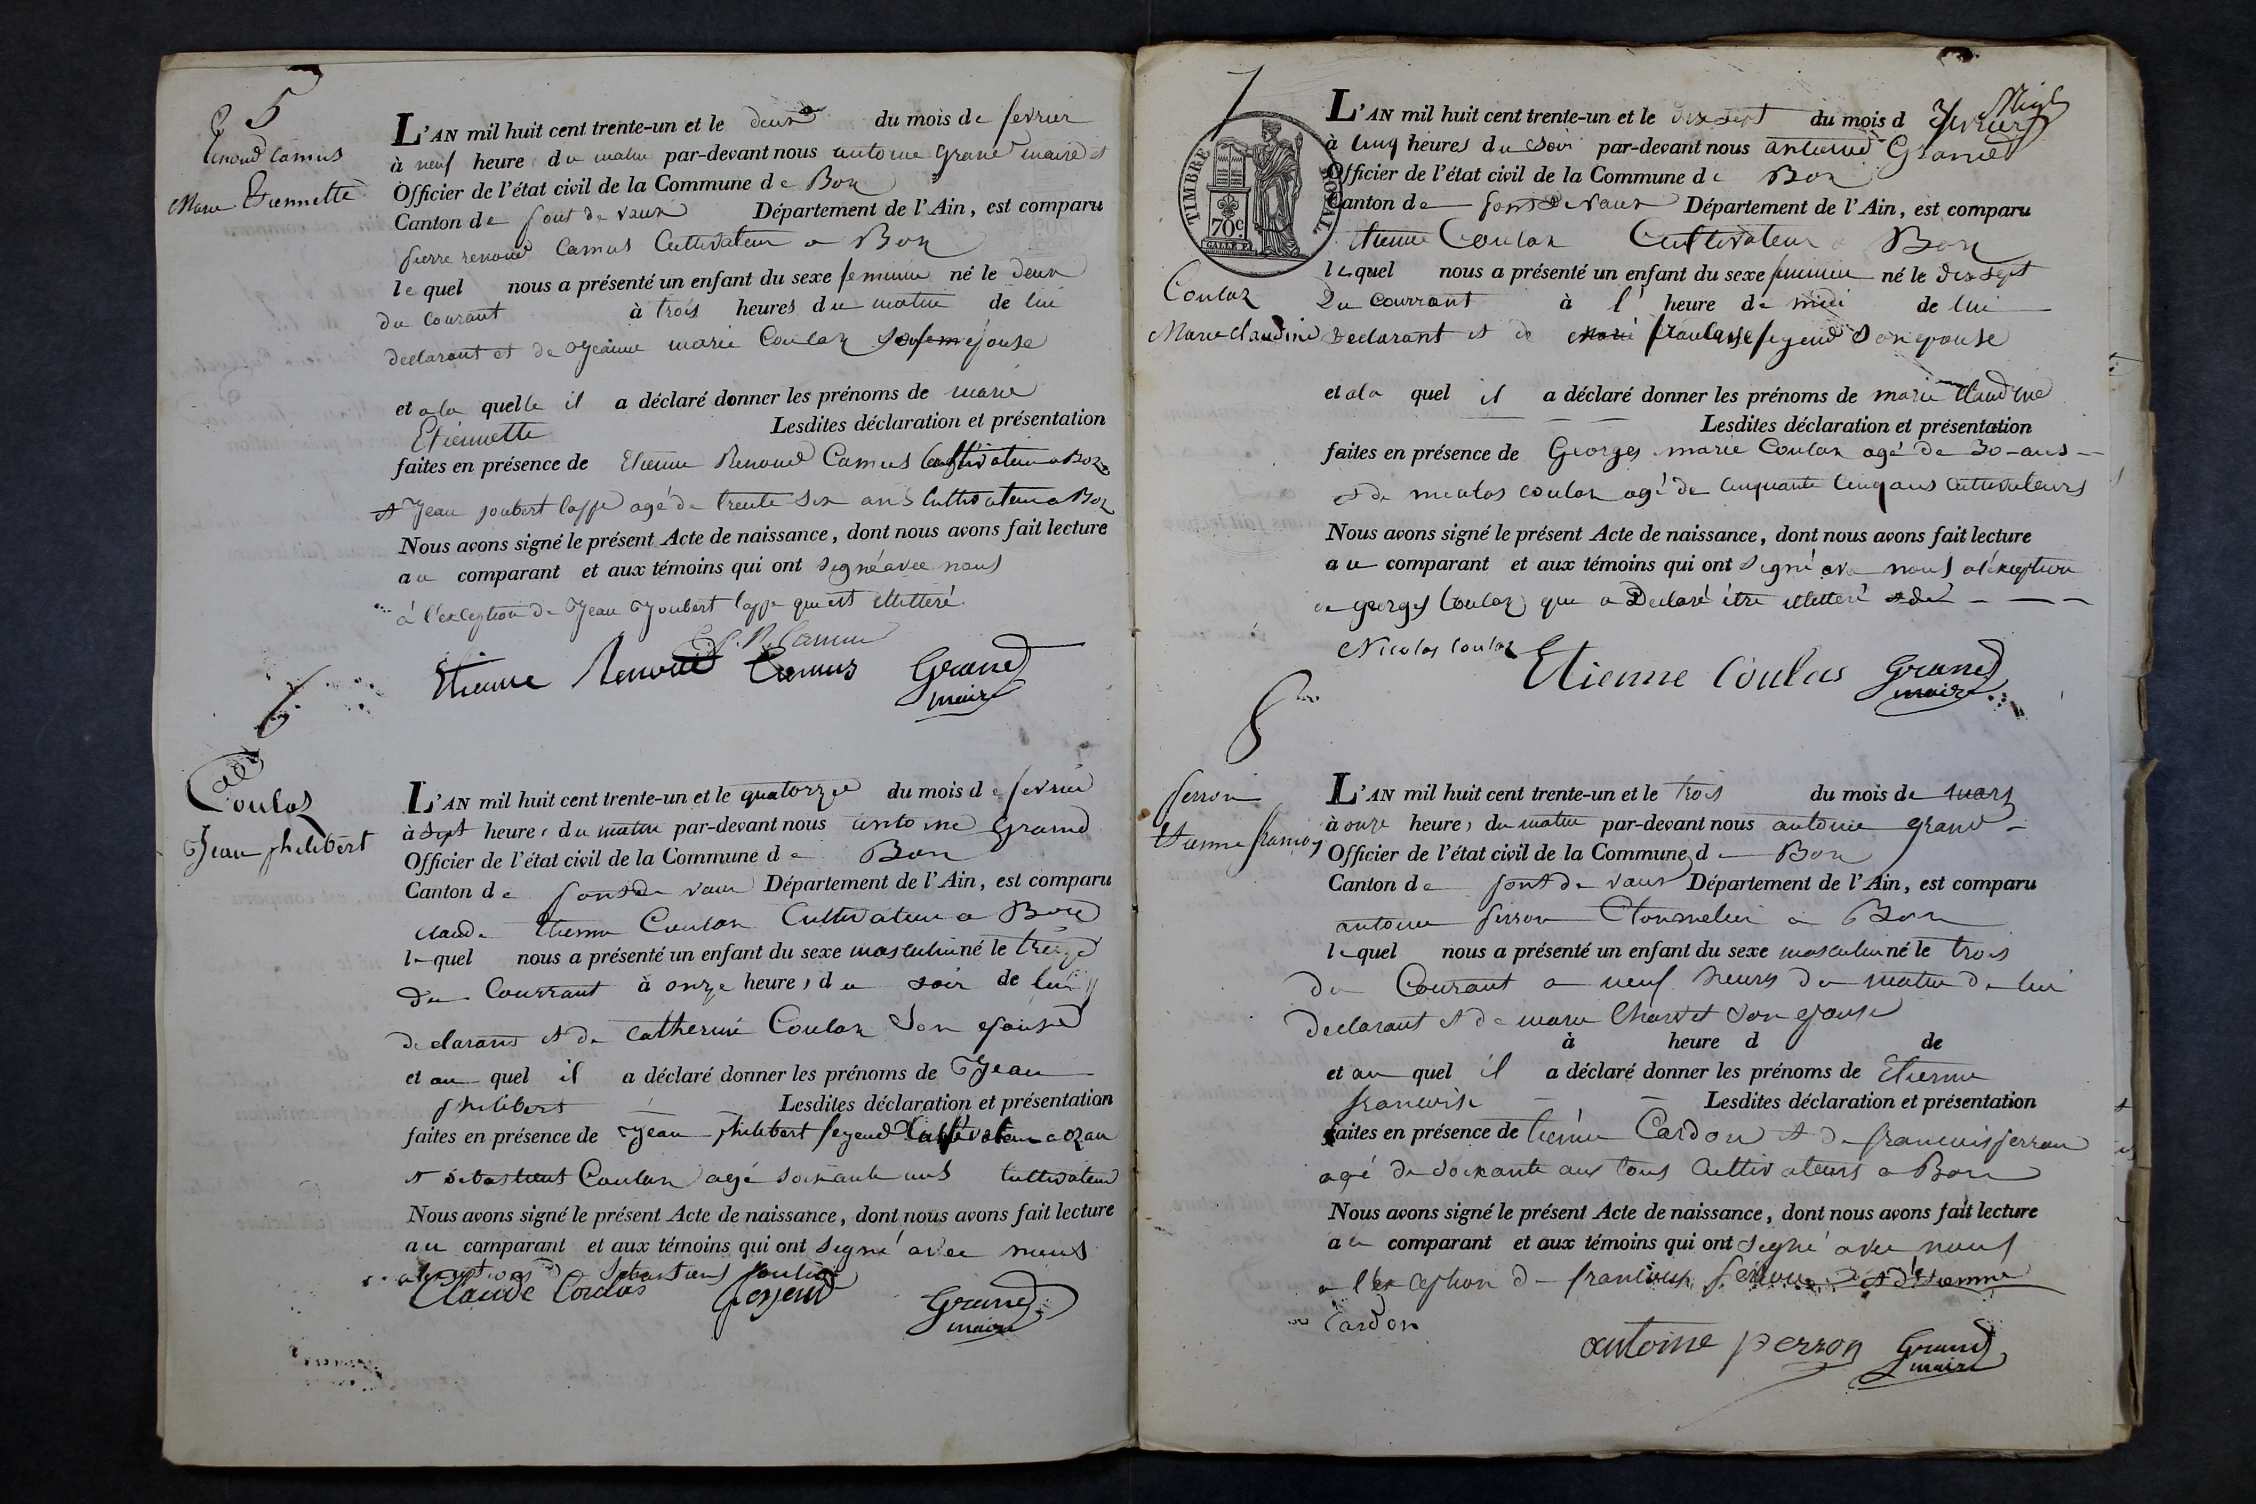 5
Renoud Camus
Marie Etiennette
L'AN mil huit cent trente-un et le deux du mois de fevrier
à neuf heure du matin par-devant nous antoine grand maire et
Officier de l'état civil de la Commune de Boz
Canton de pont de vaux Département de l'Ain, est comparu
pierre renoud Camus Cultivateur a Boz
lequel nous a présenté un enfant du sexe feminin né le deux
du courant à trois heures du matin de lui
declarant et de Jeanne marie Coulaz epouse
et a la quelle il a déclaré donner les prénoms de marie
Etiennette Lesdites déclaration et présentation
faites en présence de Etienne Renoud Camus Cultivateur a Boz
et Jean joubert laffe agé de trente six ans Cultivateur a Boz
Nous avons signé le présent Acte de naissance, dont nous avons fait lecture
au comparant et aux témoins qui ont signé avec nous
à l'exception de Jean Joubert laffe qui est illitteré
P. R. Camus
Etienne Renoud Camus Grand
maire
6
Coulaz
Jean philibert
L'AN mil huit cent trente-un et le quatorze du mois de fevrier
à sept heures du matin par-devant nous antoine Grand
Officier de l'état civil de la Commune de Boz
Canton de pont de vaux Département de l'Ain, est comparu
claude Etienne Coulaz Cultivateur a Boz
lequel nous a présenté un enfant du sexe masculin né le treize
du Courrant à onze heures du soir de lui
declarant et de Catherine Coulaz Son epouse
et au quel il a déclaré donner les prénoms de Jean
philibert Lesdites déclaration et présentation
faites en présence de Jean philibert feyeud Cultivateur a ozan
et sebastient Coulaz agé soixante ans Cultivateur
Nous avons signé le présent Acte de naissance, dont nous avons fait lecture
au comparant et aux témoins qui ont signé avec nous
Claude Coulas feyeud Grand
maire
7
TIMBRE ROYAL
70c.
L'AN mil huit cent trente-un et le dix sept du mois d fevrier
à cinq heures du soir par-devant nous antoine Grand
Officier de l'état civil de la Commune de Boz
Canton de pont de vaux Département de l'Ain, est comparu
etienne Coulaz Cultivateur a Boz
lequel nous a présenté un enfant du sexe feminin né le dix sept
Coulaz
Du Courrant à l' heure de midi de lui
Marie Claudine
Declarant et de feyeud son epouse
et a la quel il a déclaré donner les prénoms de marie Claudine
Lesdites déclaration et présentation
faites en présence de Georges marie Coulaz agé de 30 ans
et de nicolas coulaz agé de cinquante cinq ans cultivateurs
Nous avons signé le présent Acte de naissance, dont nous avons fait lecture
au comparant et aux témoins qui ont signé avec nous a l'exception
de georges Coulaz qui a Declaré être illetteré
Nicolas coulaz
Etienne Coulas Grand
maire
8
ferron
Etienne francois
L'AN mil huit cent trente-un et le trois du mois de mars
à onze heures du matin par-devant nous antoine grand
Officier de l'état civil de la Commune de Boz
Canton de pont de vaux Département de l'Ain, est comparu
antoine perron Tonnelier a Boz
lequel nous a présenté un enfant du sexe masculin né le trois
du Courant a neuf heures du matin de lui
declarant et de marie Charvet son epouse
à heure d de
et au quel il a déclaré donner les prénoms de Etienne
francois Lesdites déclaration et présentation
faites en présence de Etienne Cardon et de francois perron
agé de soixante ans tous Cultivateurs a Boz
Nous avons signé le présent Acte de naissance, dont nous avons fait lecture
au comparant et aux témoins qui ont signé avec nous
a l'exception de francois perron et d'etienne
Cardon
antoine perron Grand
maire